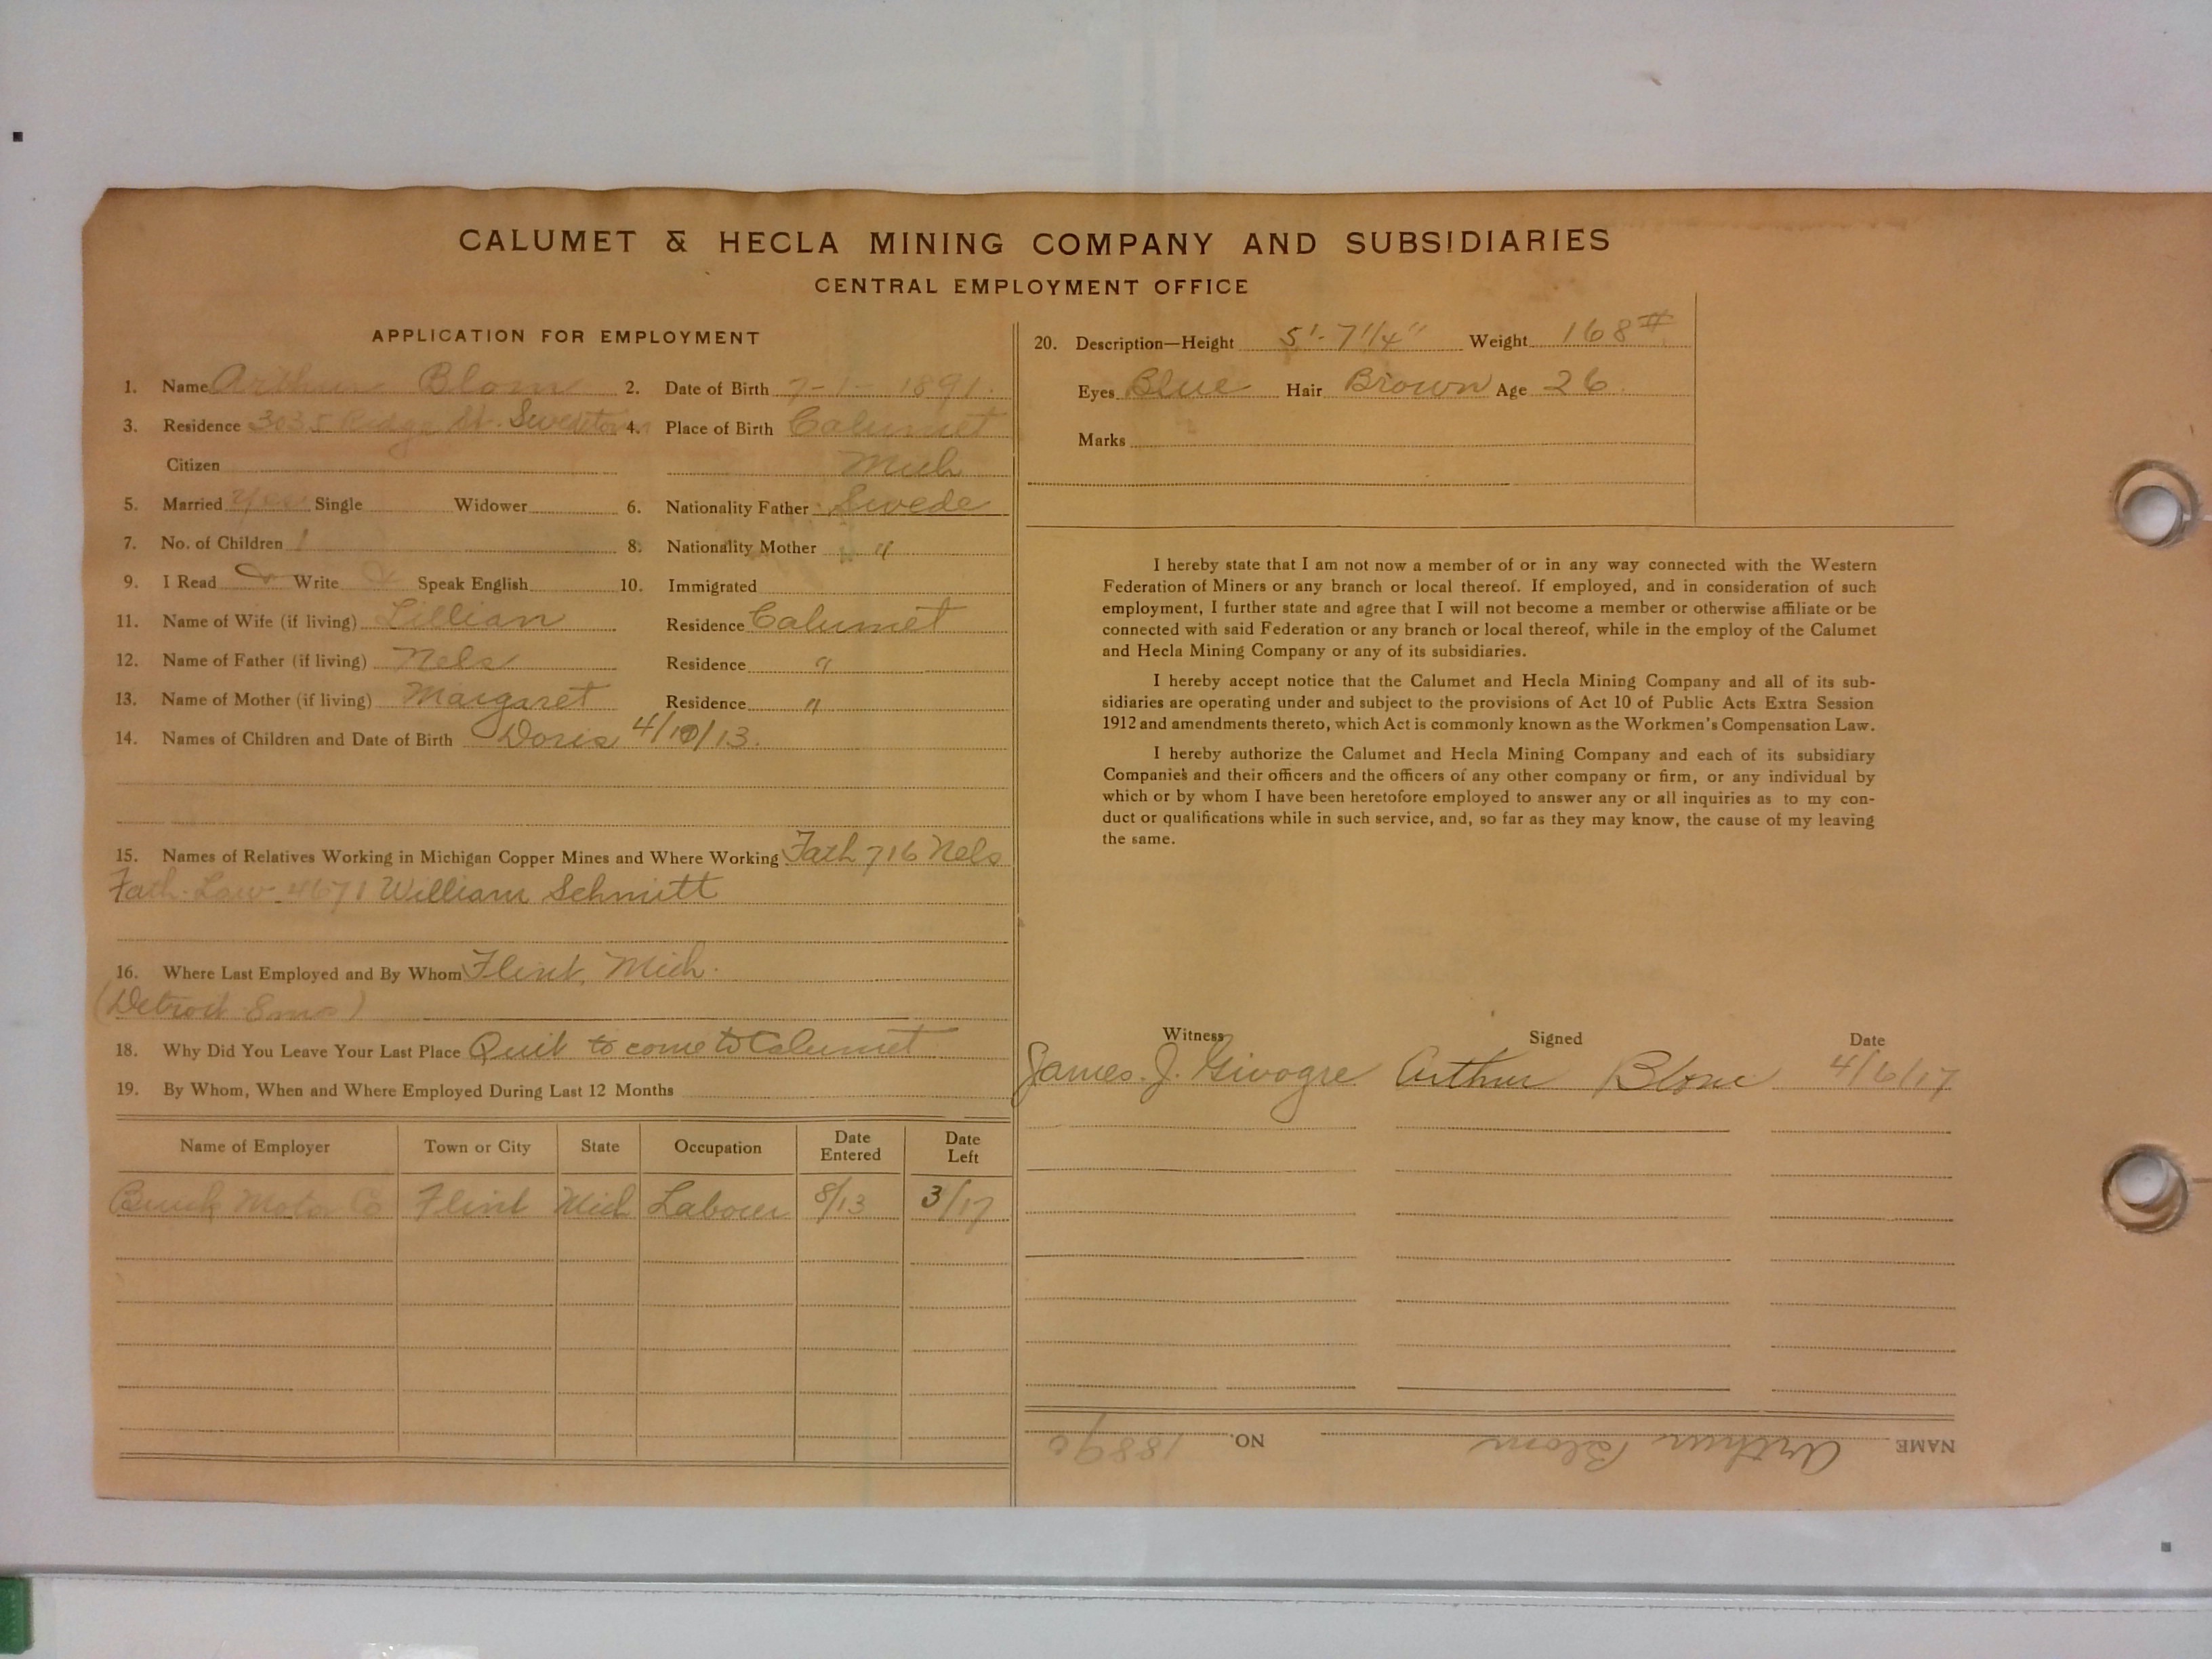 CALUMET & HECLA MINING COMPANY AND SUBSIDIARIES
CENTRAL EMPLOYMENT OFFICE
APPLICATION FOR EMPLOYMENT
1. Name Arthur Blom 2. Date of Birth 7-1-1891.
3. Residence 3035 Ridge St. Swedetown 4. Place of Birth Calumet
Citizen Mich
5. Married Yes Single Widower 6. Nationality Father Swede
7. No. of Children 1 8. Nationality Mother "
9. I Read Write Speak English 10. Immigrated
11. Name of Wife (if living) Lillian Residence Calumet
12. Name of Father (if living) Nels Residence "
13. Name of Mother (if living) Margaret Residence "
14. Names of Children and Date of Birth Doris 4/10/13.
15. Names of Relatives Working in Michigan Copper Mines and Where Working Fath 716 Nels
Fath. Law 4671 William Schmitt
16. Where Last Employed and By Whom Flint, Mich.
(Detroit 8 mos)
18. Why Did You Leave Your Last Place Quit to come to Calumet
19. By Whom, When and Where Employed During Last 12 Months
Name of Employer Town or City State Occupation Date Entered Date Left
Buick Motor Co Flint Mich Labourer 8/13 3/17
20. Description—Height 5'-7 1/4" Weight 168#
Eyes Blue Hair Brown Age 26.
Marks
I hereby state that I am not now a member of or in any way connected with the Western
Federation of Miners or any branch or local thereof. If employed, and in consideration of such
employment, I further state and agree that I will not become a member or otherwise affiliate or be
connected with said Federation or any branch or local thereof, while in the employ of the Calumet
and Hecla Mining Company or any of its subsidiaries.
I hereby accept notice that the Calumet and Hecla Mining Company and all of its sub-
sidiaries are operating under and subject to the provisions of Act 10 of Public Acts Extra Session
1912 and amendments thereto, which Act is commonly known as the Workmen's Compensation Law.
I hereby authorize the Calumet and Hecla Mining Company and each of its subsidiary
Companies and their officers and the officers of any other company or firm, or any individual by
which or by whom I have been heretofore employed to answer any or all inquiries as to my con-
duct or qualifications while in such service, and, so far as they may know, the cause of my leaving
the same.
Witness Signed Date
James. J. Givogre Arthur Blom 4/6/17
NAME Arthur Blom NO. 18890